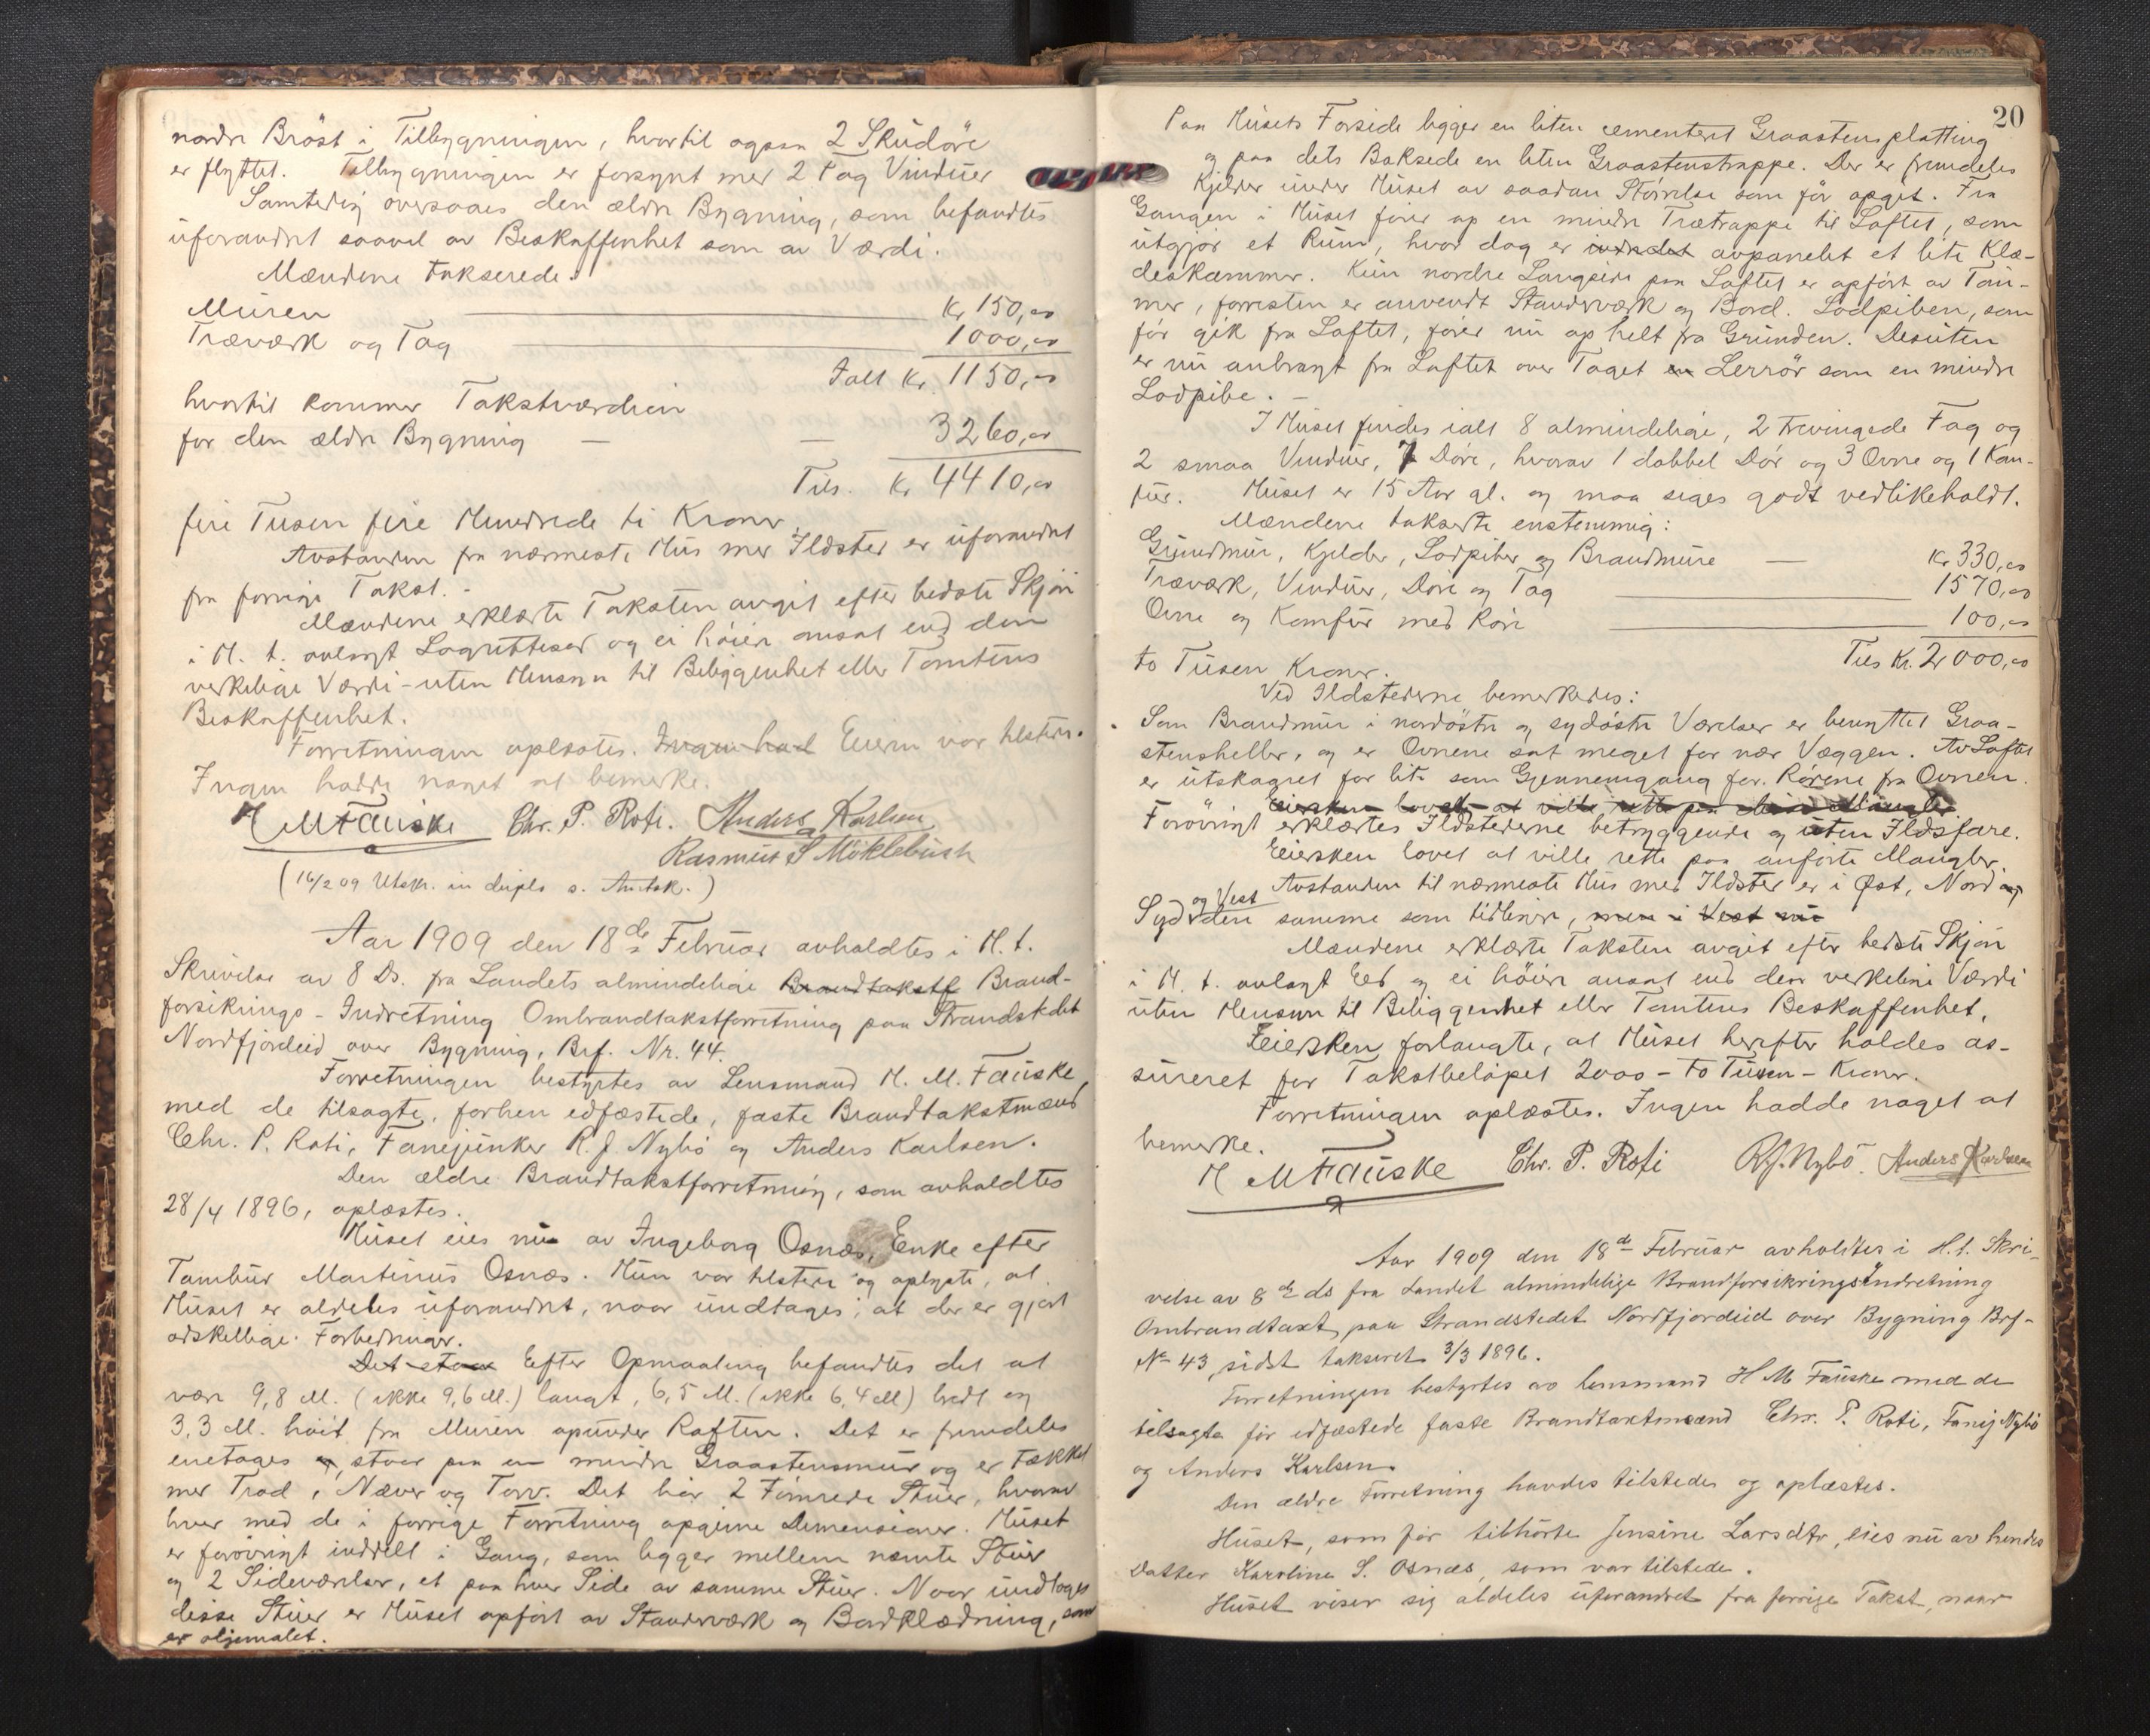 nordre Bröst i Tilbygningen, hvortil ogsaa 2 Skudöre
er flyttet. Tilbygningen er forsynt mer 2 Fag Vinduer
Samtedig oversaaes den ældre Bygning, som befandtes
uforandret saavel av Beskaffenhet som av Værdi.
Mændene takserede:
Muren Kr. 150,00
Træværk og Tag 1000,00
Ialt Kr. 1150,00
hvortil kommer Takstværdien
for den ældre Bygning — — 3260,00
Tils. Kr. 4410,00
fire Tusen fire Hundrede ti Kroner.
Avstanden fra nærmeste Hus mer Ildsted er uforandret
fra forrige Takst.
Mændene erklærte Taksten avgit efter bedste Skjön
i H. t. avlagt Lagrettesed og ei höiere ansat end den
verkelige Værdi – uten Hensyn til Beliggenhet eller Tomtens
Beskaffenhet.
Forretningen oplæstes. Ingen had Eieren var tilstede.
Ingen hadde noget at bemerke.
H M Fauske Chr. P. Roti. Anders Karlsen
Rasmus S Myklebust
(16/2 09 Utskr. in duplo s. Amtsk.)
Aar 1909 den 18de Februar avholdtes i H. t.
Skrivelse av 8 Ds. fra Landets almindelige Brandtakstf Brand-
forsikrings-Indretning Ombrandtakstforretning paa Strandstedet
Nordfjordeid over Bygning, Brf. Nr. 44.
Forretningen bestyrtes av Lensmand H. M. Fauske,
med de tilsagte, forhen edfæstede, faste Brandtakstmænd
Chr. P. Roti, Fanejunker R. J. Nybö og Anders Karlsen.
Den ældre Brandtakstforretning, som avholdtes
28/4 1896, oplæstes.
Huset eies nu av Ingeborg Osnæs, Enke efter
Tambur Martinus Osnæs. Hun var tilstede og oplyste, at
Huset er aldeles uforandret, naar undtages, at der er gjort
adskellige Forbedringer.
Det staar Efter Opmaaling befandtes det at
være 9,8 M. (ikke 9,6 M.) langt, 6,5 M. (ikke 6,4 M) bredt og
3,3 M. höit fra Muren opunder Raften. Det er fremdeles
enetages og, staar paa en mindre Graastensmur og er tækket
mer Trod, Næver og Torv. Det har 2 Tömrede Stuer, hvorav
hver med de i forrige Forretning opgivne Dimensioner. Huset
er forövrigt inddelt i Gang, som ligger mellem nævnte Stuer
og 2 Sideværelser, et paa hver Side av samme Stuer. Naar undtages
disse Stuer er Huset opfört av Standsværk og Bordklædning, som
er oljemalet.
20
Paa Husets Forside ligger en liten cementeret Graastensplatting
og paa dets Bakside en liten Graastenstrappe. Der er fremdeles
Kjelder under Huset av saadan Störrelse som för opgit. Fra
Gangen i Huset förer op en mindre Trætrappe til Loftet, som
utgjör et Rum, hvor dog er indredet avpanelet et lite Klæ-
deskammer. Kun nordre Langside paa Loftet er opfört av Töm-
mer, forresten er anvendt Standsværk og Bord. Lodpiben, som
för gik fra Loftet, förer nu op helt fra Grunden. Desuten
er nu anbragt fra Loftet over Taget en Lerrör som en mindre
Lodpibe. —
I Huset findes ialt 8 almindelige, 2 trevingede Fag og
2 smaa Vinduer, 7 Döre, hvorav 1 dobbel Dör og 3 Ovne og 1 Kom-
fur. Huset er 15 Aar gl. og maa siges godt vedlikeholdt.
Mændene takserte enstemmig:
Grundmur, Kjelder, Lodpiber og Brandmure — Kr. 330,00
Træværk, Vinduer, Döre og Tag 1570,00
Ovne og Komfur med Rör 100,00
Tils Kr. 2000,00
to Tusen Kroner.
Ved Ildstederne bemerkedes:
Som Brandmur i nordöstre og sydöstre Værelser er benyttet Graa-
stensheller, og er Ovnene sat meget for nær Væggen. Av Loftet
er utskaaret for lite som Gjennemgang for Rörene fra Ovnen.
Eiersken lovet at ville rette paa disse Mangler
Forövrigt erklærtes Ildstederne betryggende og uten Ildsfare.
Eiersken lovet at ville rette paa anförte Mangler.
Avstanden til nærmeste Hus mer Ildsted er i Öst, Nord og
Syd og Vest den samme som tidligere, men i Vest nu
Mændene erklærte Taksten avgit efter bedste Skjön
i H. t. avlagt Ed og ei höiere ansat end den verkelige Værdi
uten Hensyn til Beliggenhet eller Tomtens Beskaffenhet.
Eiersken forlangte, at Huset herefter holdes as-
sureret for Takstbelöpet 2000 – to Tusen – Kroner.
Forretningen oplæstes. Ingen hadde noget at
bemerke.
H M Fauske Chr. P. Roti R.J. Nybö. Anders Karlsen
Aar 1909 den 18de Februar avholdtes i H. t. Skri-
velse av 8de ds fra Landets almindelige Brandforsikringsindretning
Ombrandtaxt paa Strandstedet Nordfjordeid over Bygning Brf-
No 43, sidst takseret 3/3 1896.
Forretningen bestyrtes av lensmand H M Fauske med de
tilsagte för edfæstede faste Brandtaxtmænd Chr. P. Roti, Fanej Nybö
og Anders Karlsen.
Den ældre Forretning havdes tilstedes og oplæstes.
Huset, som för tilhörte Jensine Larsdtr, eies nu av hendes
Datter Karoline S. Osnæs, som var tilstede.
Huset viser sig aldeles uforandret fra forrige Takst, naar